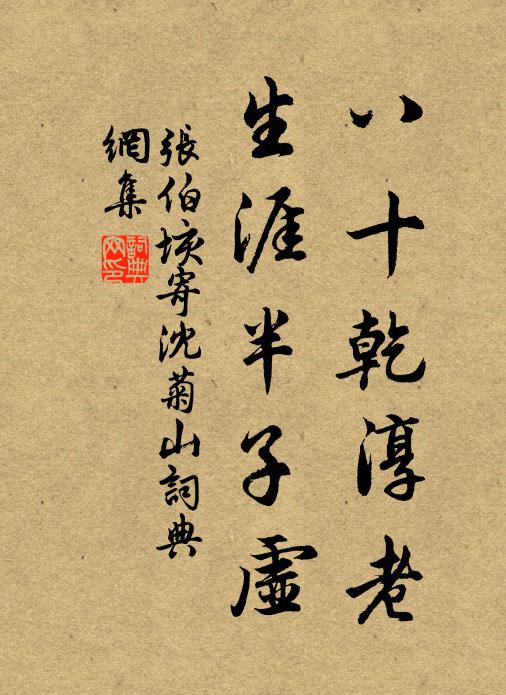 八十乾淳老
生涯半子虛
張伯垓寄沈菊山詞典
網集
詞典
网印